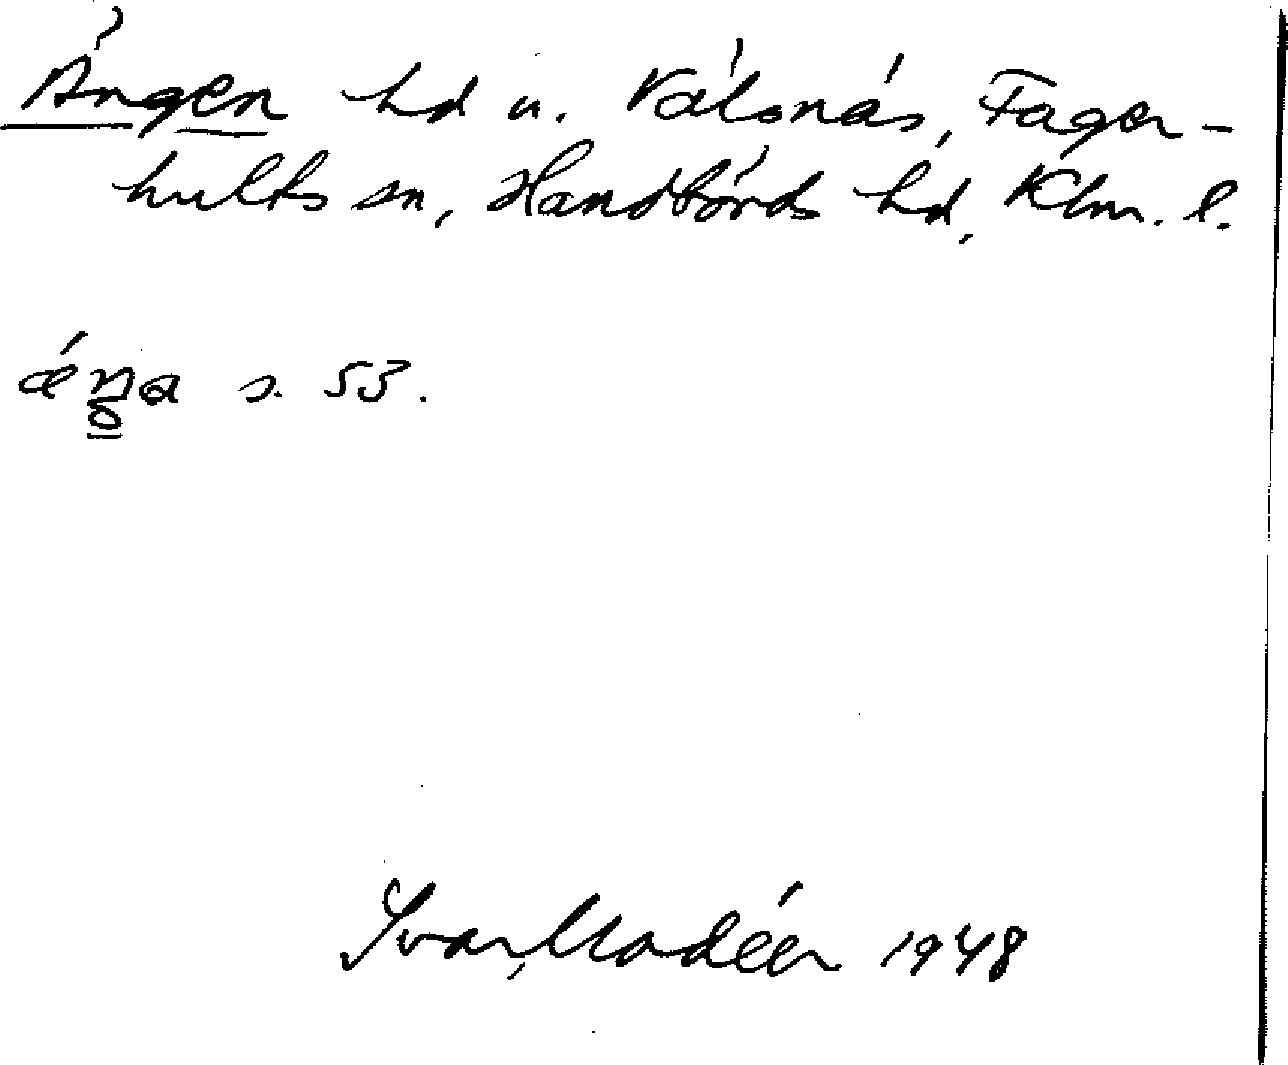 Ängen hd u. Välsnäs, Fager-
hults sn, Handbörds hd, Klm. l.
s. 53.
Ivar Modéer 1948